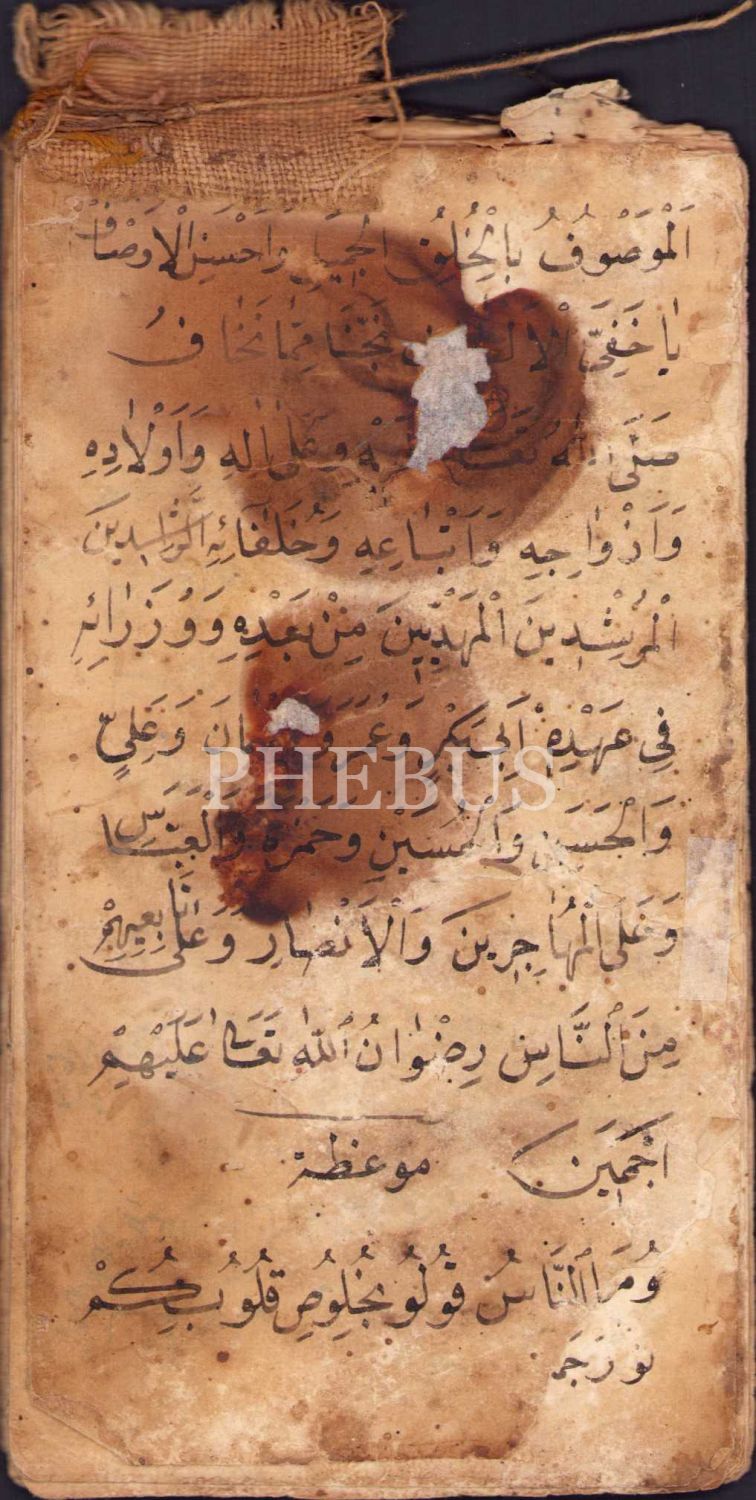 اَلْمَوْصُوفُ بِالْخُلِقِ الْجَمِيلِ وَاَحْسَنِ الْاَوْصَافْ
يَا خَفِىَّ الْاَ نَجِّنَا مِمَّا نَخَافُ
صَلَّى اللّٰهُ تَعَا وَعَلٰى اٰلِهِ وَاَوْلَادِهِ
وَاَزْوَاجِهِ وَاَتْبَاعِهِ وَخُلَفَائِهِ الرَّاشِدِينَ
الْمُرْشِدِينَ الْمَهْدِيِّينَ مِنْ بَعْدِهِ وَوُزَرَائِهِ
فِى عَهْدِهِ اَبِى بَكْرٍ وَعُمَرَ وَ مَانَ وَعَلِىٍّ
وَالْحَسَنِ وَالْحُسَيْنِ وَحَمْزَةَ وَالْعَبَّاسِ
وَعَلَى الْمُهَاجِرِينَ وَالْاَنْصَارِ وَعَلٰى تَابِعِيهِمْ
مِنَ النَّاسِ رِضْوَانُ اللّٰهِ تَعَالٰى عَلَيْهِمْ
اَجْمَعِينَ موعظة
النَّاسُ قُولُو بِخُلُوصِ قُلُوبِكُمْ
PHEBUS